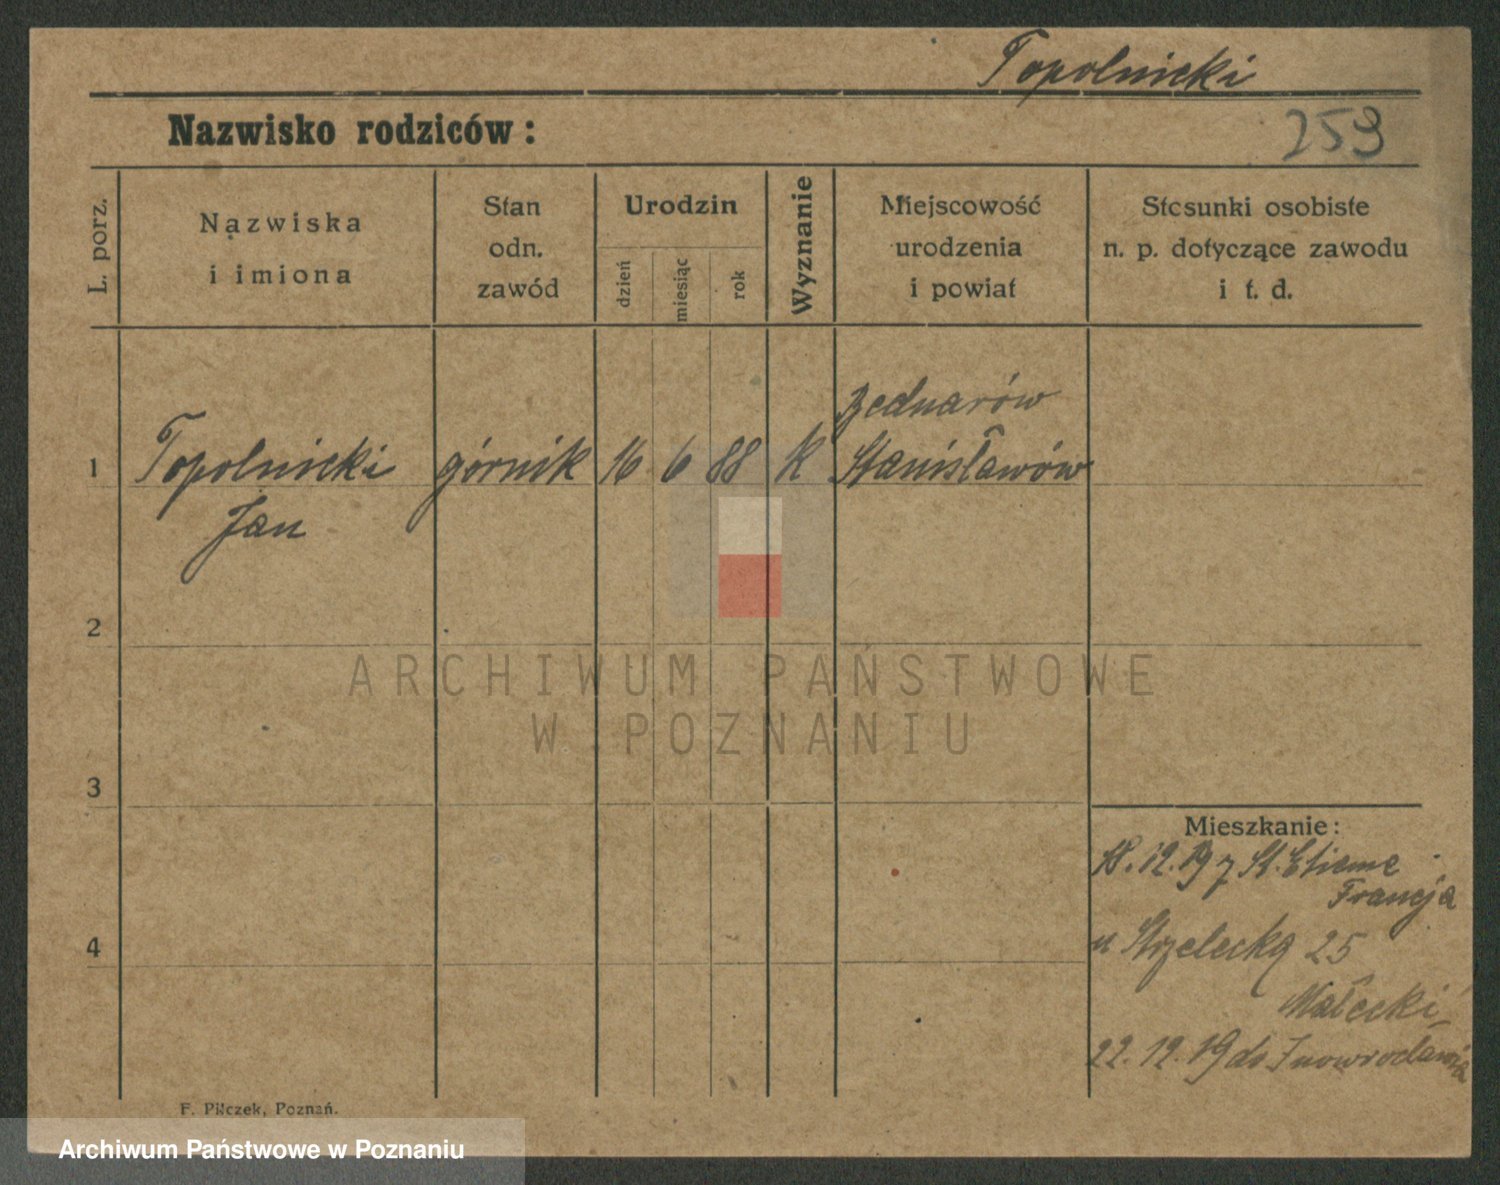 Topolnicki
Nazwisko rodziców:
259
L. porz.
Nazwiska
i imiona
Stan
odn.
zawód
Urodzin
dzień
miesiąc
rok
Wyznanie
Miejscowość
urodzenia
i powiat
Stosunki osobiste
n. p. dotyczące zawodu
i t. d.
1
Topolnicki
Jan
górnik
16
6
88
K
Bednarów
Stanisławów
2
3
4
Mieszkanie:
18.12.19 z St. Etieme
Francja
u Strzelecka 25
Małecki
22.12.19 do Inowrocławia
F. Pilczek, Poznań.
ARCHIWUM PAŃSTWOWE
W POZNANIU
Archiwum Państwowe w Poznaniu